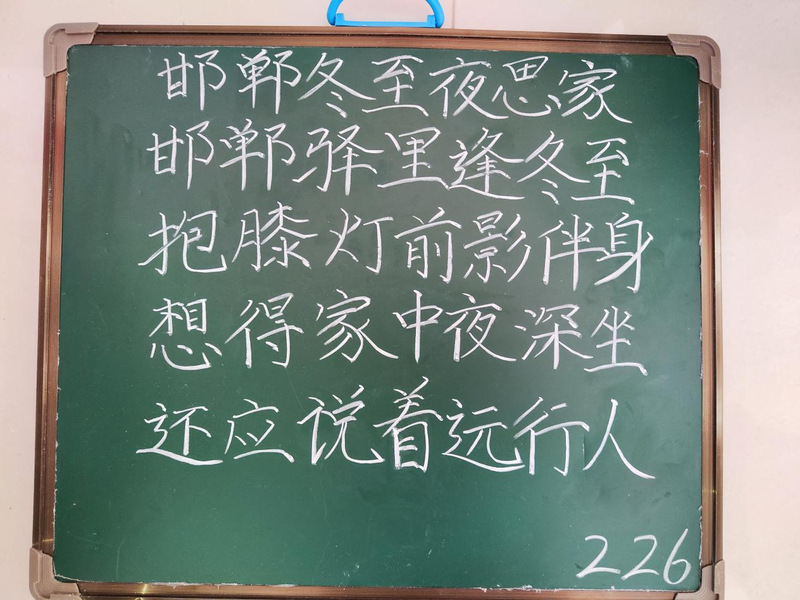 邯郸冬至夜思家
邯郸驿里逢冬至
抱膝灯前影伴身
想得家中夜深坐
还应说着远行人
226